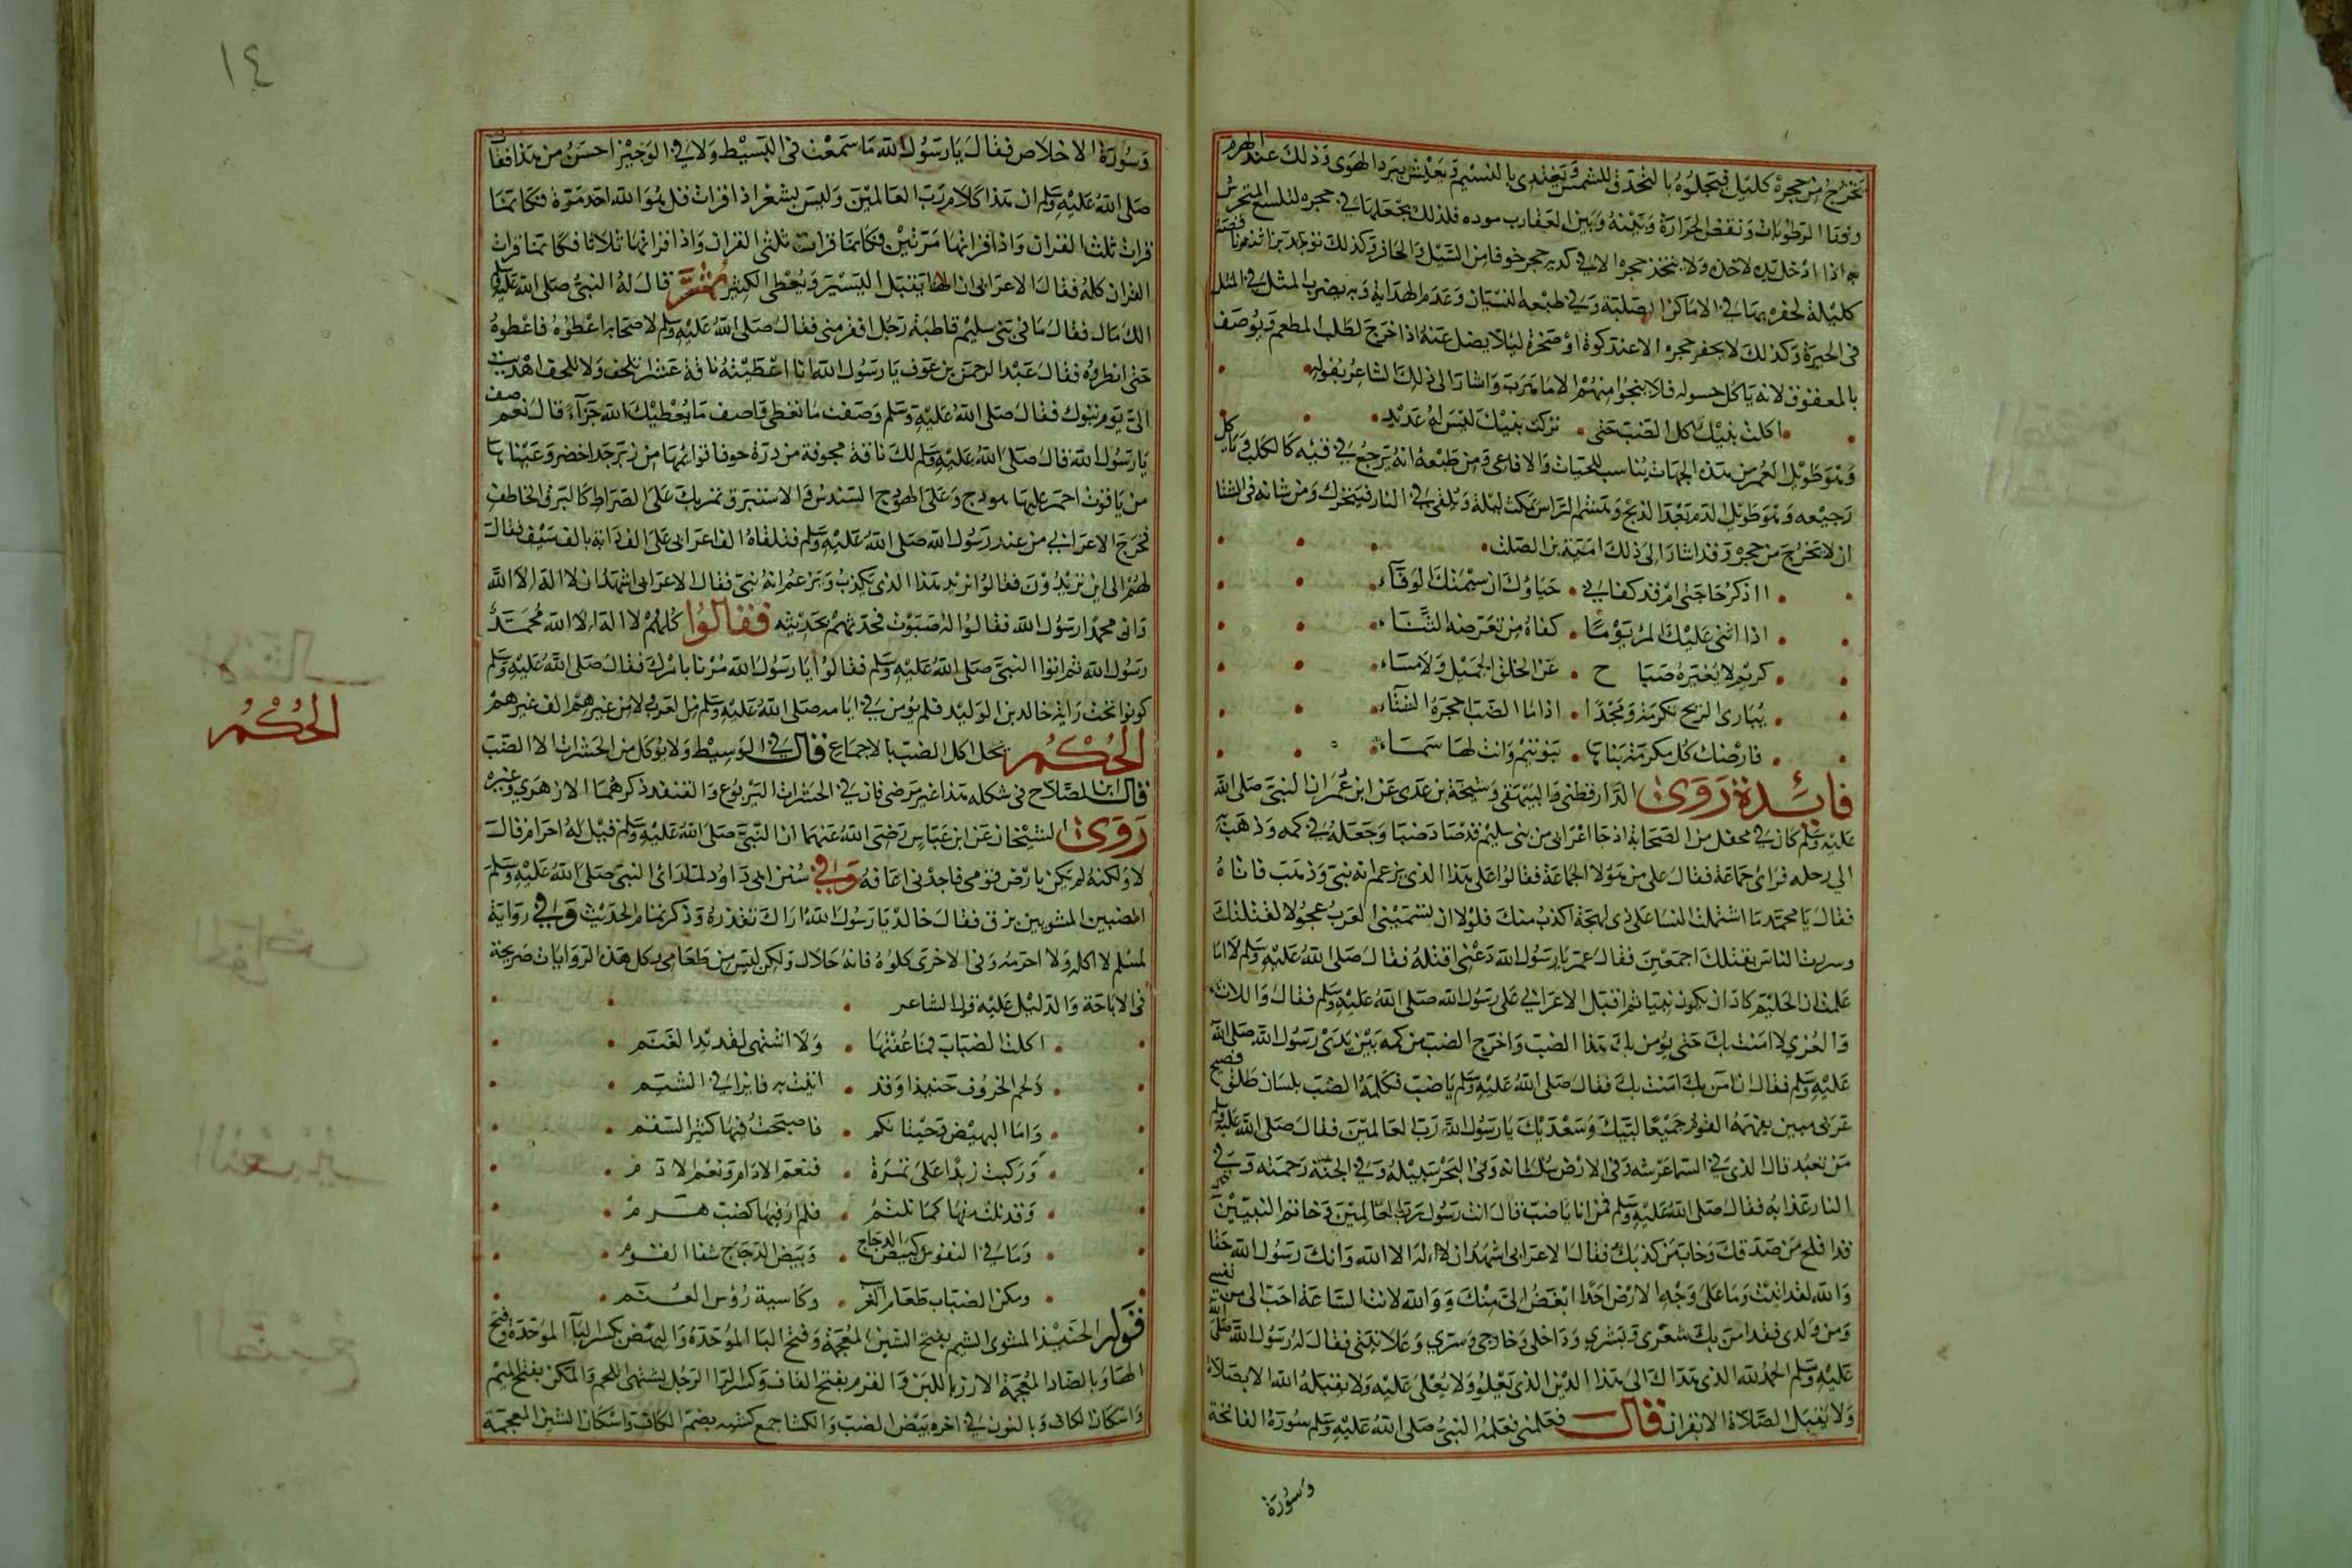 تخرج من حجره كليل فيجلوه بالتحدق للشمس وتغتدى بالنسيم ويعيش ببرد الهوى وذلك عند الهرم
وفنا الرطوبات ونقض الحرارة وبينه وبين العقارب موده فلذلك يجعلها في حجره لتلسع المتحرش
به اذا ادخل يده لاخذه ولا يتخذ حجره الا في كديه حجر خوفا من السيل والحافر وكذلك توجد براثنه ناقصة
كليلة لحفره بها في الاماكن الصلبة وفي طبعه النسيان وعدم الهداية وبه يضرب المثل في المثل
فى الحيرة وكذلك لا يحفر حجره الا عند كوة او صخرة ليلا يضل عنه اذا خرج لطلب المطعم ويوصف
بالعقوق لانه ياكل حسوله فلا ينجوا منهم الا ما هرب واشار الى ذلك الشاعر بقوله
اكلت بنيك اكل الضب حتى · تركت بنيك ليس لهم عديد
وهو طويل العمر من هذه الجهات يناسب للحيات والافاعى ومن طبعه انه يرجع في قيئه كالكلب وياكل
رجيعه وهو طويل الدم بعد الذبح وهشم الراس يمكث ليلة ويلقى في النار فيتحرك ومن شانه فى الشتا
ان لا يخرج من حجره وقد اشار الى ذلك امية بن الصلت
ااذكر حاجتى ام قد كفاني · حياوك ان شيمتك الوفاء
اذا اثنى عليك المرء يوما · كفاه من تعرضه الثناء
كريم لا يغيره صباح · عن الخلق الجميل ولا مساء
يبارى الريح تكرمة ومجدا · اذا ما الضب احجره الشتاء
فارضك كل مكرمة بناها · بنو تيم وانت لها سماء
فايدة روى الدارقطنى والبيهقى وشيخه بن عدى عن ابن عمر ان النبى صلى الله
عليه وسلم كان في محفل من الصحابة اذ جا اعرابى من بنى سليم قد صاد ضبا وجعله في كمه وذهب به
الي رحله فراى جماعة فقال على من هولا الجماعة فقالوا على هذا الذى يزعم انه نبى وذهب فاتاه
فقال يا محمد ما اشتملت النسا على ذى لهجة اكذب منك فلولا ان تسميني العرب عجولا لقتلتك
وسررت الناس بقتلك اجمعين فقال عمر يا رسول الله دعنى اقتله فقال صلى الله عليه وسلم لا اما
علمت ان الحليم كاد ان يكون نبيا ثم اقبل الاعرابي على رسول الله صلى الله عليه وسلم فقال واللات
والعزي لا امنت بك حتى يومن بك هذا الضب واخرج الضب من كمه بين يدى رسول الله صلى الله
عليه وسلم فقال ان امن بك امنت بك فقال صلى الله عليه وسلم يا ضب فكلمه الضب بلسان طلق فصيح
عربى مبين يفهمه القوم جميعا لبيك وسعديك يا رسول الله رب العالمين فقال صلى الله عليه وسلم
من تعبد قال الذى في السما عرشه وفى الارض سلطانه وفى البحر سبيله وفي الجنة رحمته وفي
النار عذابه فقال صلى الله عليه وسلم فمن انا يا ضب قال انت رسول رب العالمين وخاتم النبيين
قد افلح من صدقك وخاب من كذبك فقال الاعرابى اشهد ان لا اله الا الله وانك رسول الله حقا
والله لقد اتيتك وما على وجه الارض احدا ابغض الى منك ووالله لانت الساعة احب الى من نفسي
ومن ولدى فقد امن بك شعرى وبشري وداخلى وخارجى وسري وعلانيتى فقال له رسول الله صلى الله
عليه وسلم الحمد لله الذى هداك الى هذا الدين الذى يعلو ولا يعلى عليه ولا يقبله الله الا بصلاة
ولا يقبل الصلاة الا بقران قال فعلمنى فعلمه النبي صلى الله عليه وسلم سورة الفاتحة
وسورة
١٤
وسورة الاخلاص فقال يا رسول الله ما سمعت فى البسيط ولا في الوجيز احسن من هذا فقال
صلى الله عليه وسلم ان هذا كلام رب العالمين وليس بشعر اذا قرات قل هو الله احد مرة فكانما
قرات ثلث القران واذا قراتها مرتين فكانما قرات ثلثى القران واذا قراتها ثلاثا فكانما قرات
القران كله فقال الاعرابى ان الهنا يقبل اليسير ويعطى الكثير ثم قال له النبي صلى الله عليه وسلم
الك مال فقال ما فى بنى سليم قاطبة رجل افقر منى فقال صلى الله عليه وسلم لاصحابه اعطوه فاعطوه
حتى ابطروه فقال عبد الرحمن بن عوف يا رسول الله انا اعطيته ناقة عشرا تلحق ولا تلحق اهديت
الى يوم تبوك فقال صلى الله عليه وسلم وصفت ما تعطى فاصف ما يعطيك الله جزاء قال نعم صف
يا رسول الله قال صلى الله عليه وسلم لك ناقة مجوفة من درة جوفا قوائمها من زبرجد اخضر وعيناها
من ياقوت احمر عليها هودج وعلى الهودج السندس والاستبرق تمر بك على الصراط كالبرق الخاطف
فخرج الاعرابي من عند رسول الله صلى الله عليه وسلم فتلقاه الف اعرابى على الف دابة بالف سيف فقال
لهم الى اين تريدون فقالوا نريد هذا الذى يكذب ويزعم انه نبى فقال الاعرابى اشهد ان لا اله الا الله
وان محمدا رسول الله فقالوا له صبوت فحدثهم بحديثه فقالوا كلهم لا اله الا الله محمد
رسول الله ثم اتوا النبى صلى الله عليه وسلم فقالوا يا رسول الله مرنا بامرك فقال صلى الله عليه وسلم
كونوا تحت راية خالد بن الوليد فلم يومن في ايامه صلى الله عليه وسلم من العرب ولا من غيرهم الف غيرهم
الحكم يحل اكل الضب بالاجماع قال في الوسيط ولا يوكل من الحشرات الا الضب
قال ابن الصلاح فى شكله هذا غير مرضى فان في الحشرات اليربوع والقنفد ذكرهما الازهري وغيره
روى الشيخان عن ابن عباس رضى الله عنهما ان النبى صلى الله عليه وسلم قيل له احرام قال
لا ولكنه لم يكن بارض قومى فاجدنى اعافه وفي سنن ابى داود لما راى النبى صلى الله عليه وسلم
الضبين المشويين بزق فقال خالد يا رسول الله اراك تقذره وذكر تمام الحديث وفي رواية
لمسلم لا اكله ولا احرمه وفى الاخرى كلوه فانه حلال ولكن ليس من طعامى وكل هذه الروايات صريحة
فى الاباحة والدليل عليه قول الشاعر
اكلت الضباب فما عفتها · ولا اشتهى لقديد الغنم
ولحم الخروف حنيذا وقد · اتيت به فاترا في الشبم
واما البهيض وحيتانكم · فاصبحت فيها كثير السقم
وركبت زبدا على تمرة · فنعم الادام ونعم الادم
وقد نلت منها كما نلتم · فلم ار فيها كضب هرم
وما في التفوس كبيض الدجاج · وبيض الدجاج شفا القرم
ومكن الضباب طعام العرب · وكاسية رؤس العجم
قوله الحنيذ المشوى الشبم بفتح الشين المعجمة وفتح البا الموحدة والبهض بكسر الباء الموحدة وفتح
الها وبالضاد المعجمة الارز باللبن والقرم بفتح القاف وكسر الرا الرجل يشتهى اللحم والمكن بفتح الميم
واسكان الكاف وبالنون في اخره بيض الضب والكشا جمع كشيه بضم الكاف واسكان الشين المعجمة
الحكم